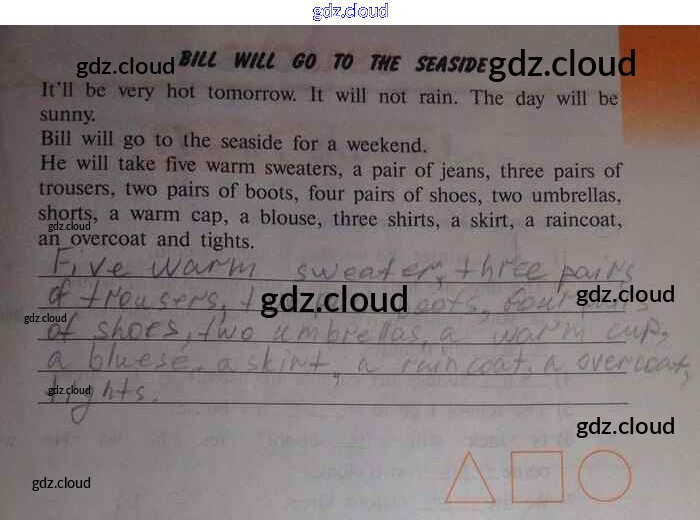 gdz.cloud
BILL WILL GO TO THE SEASIDE
gdz.cloud gdz.cloud
It'll be very hot tomorrow. It will not rain. The day will be
sunny.
Bill will go to the seaside for a weekend.
He will take five warm sweaters, a pair of jeans, three pairs of
trousers, two pairs of boots, four pairs of shoes, two umbrellas,
shorts, a warm cap, a blouse, three shirts, a skirt, a raincoat,
gdz.cloud
an overcoat and tights.
Five warm sweater, three pairs
of trousers, boots, four pairs
gdz.cloud gdz.cloud
gdz.cloud
of shoes, two umbrellas, a warm cup,
a bluese, a skirt, a raincoat, a overcoat,
tights.
gdz.cloud
gdz.cloud
gdz.cloud